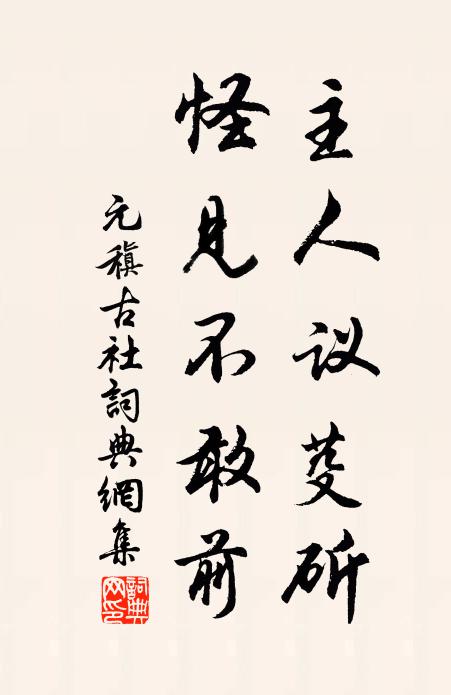 主人议芟斫
怪见不敢前
元稹古社詞典網集
詞典
网印